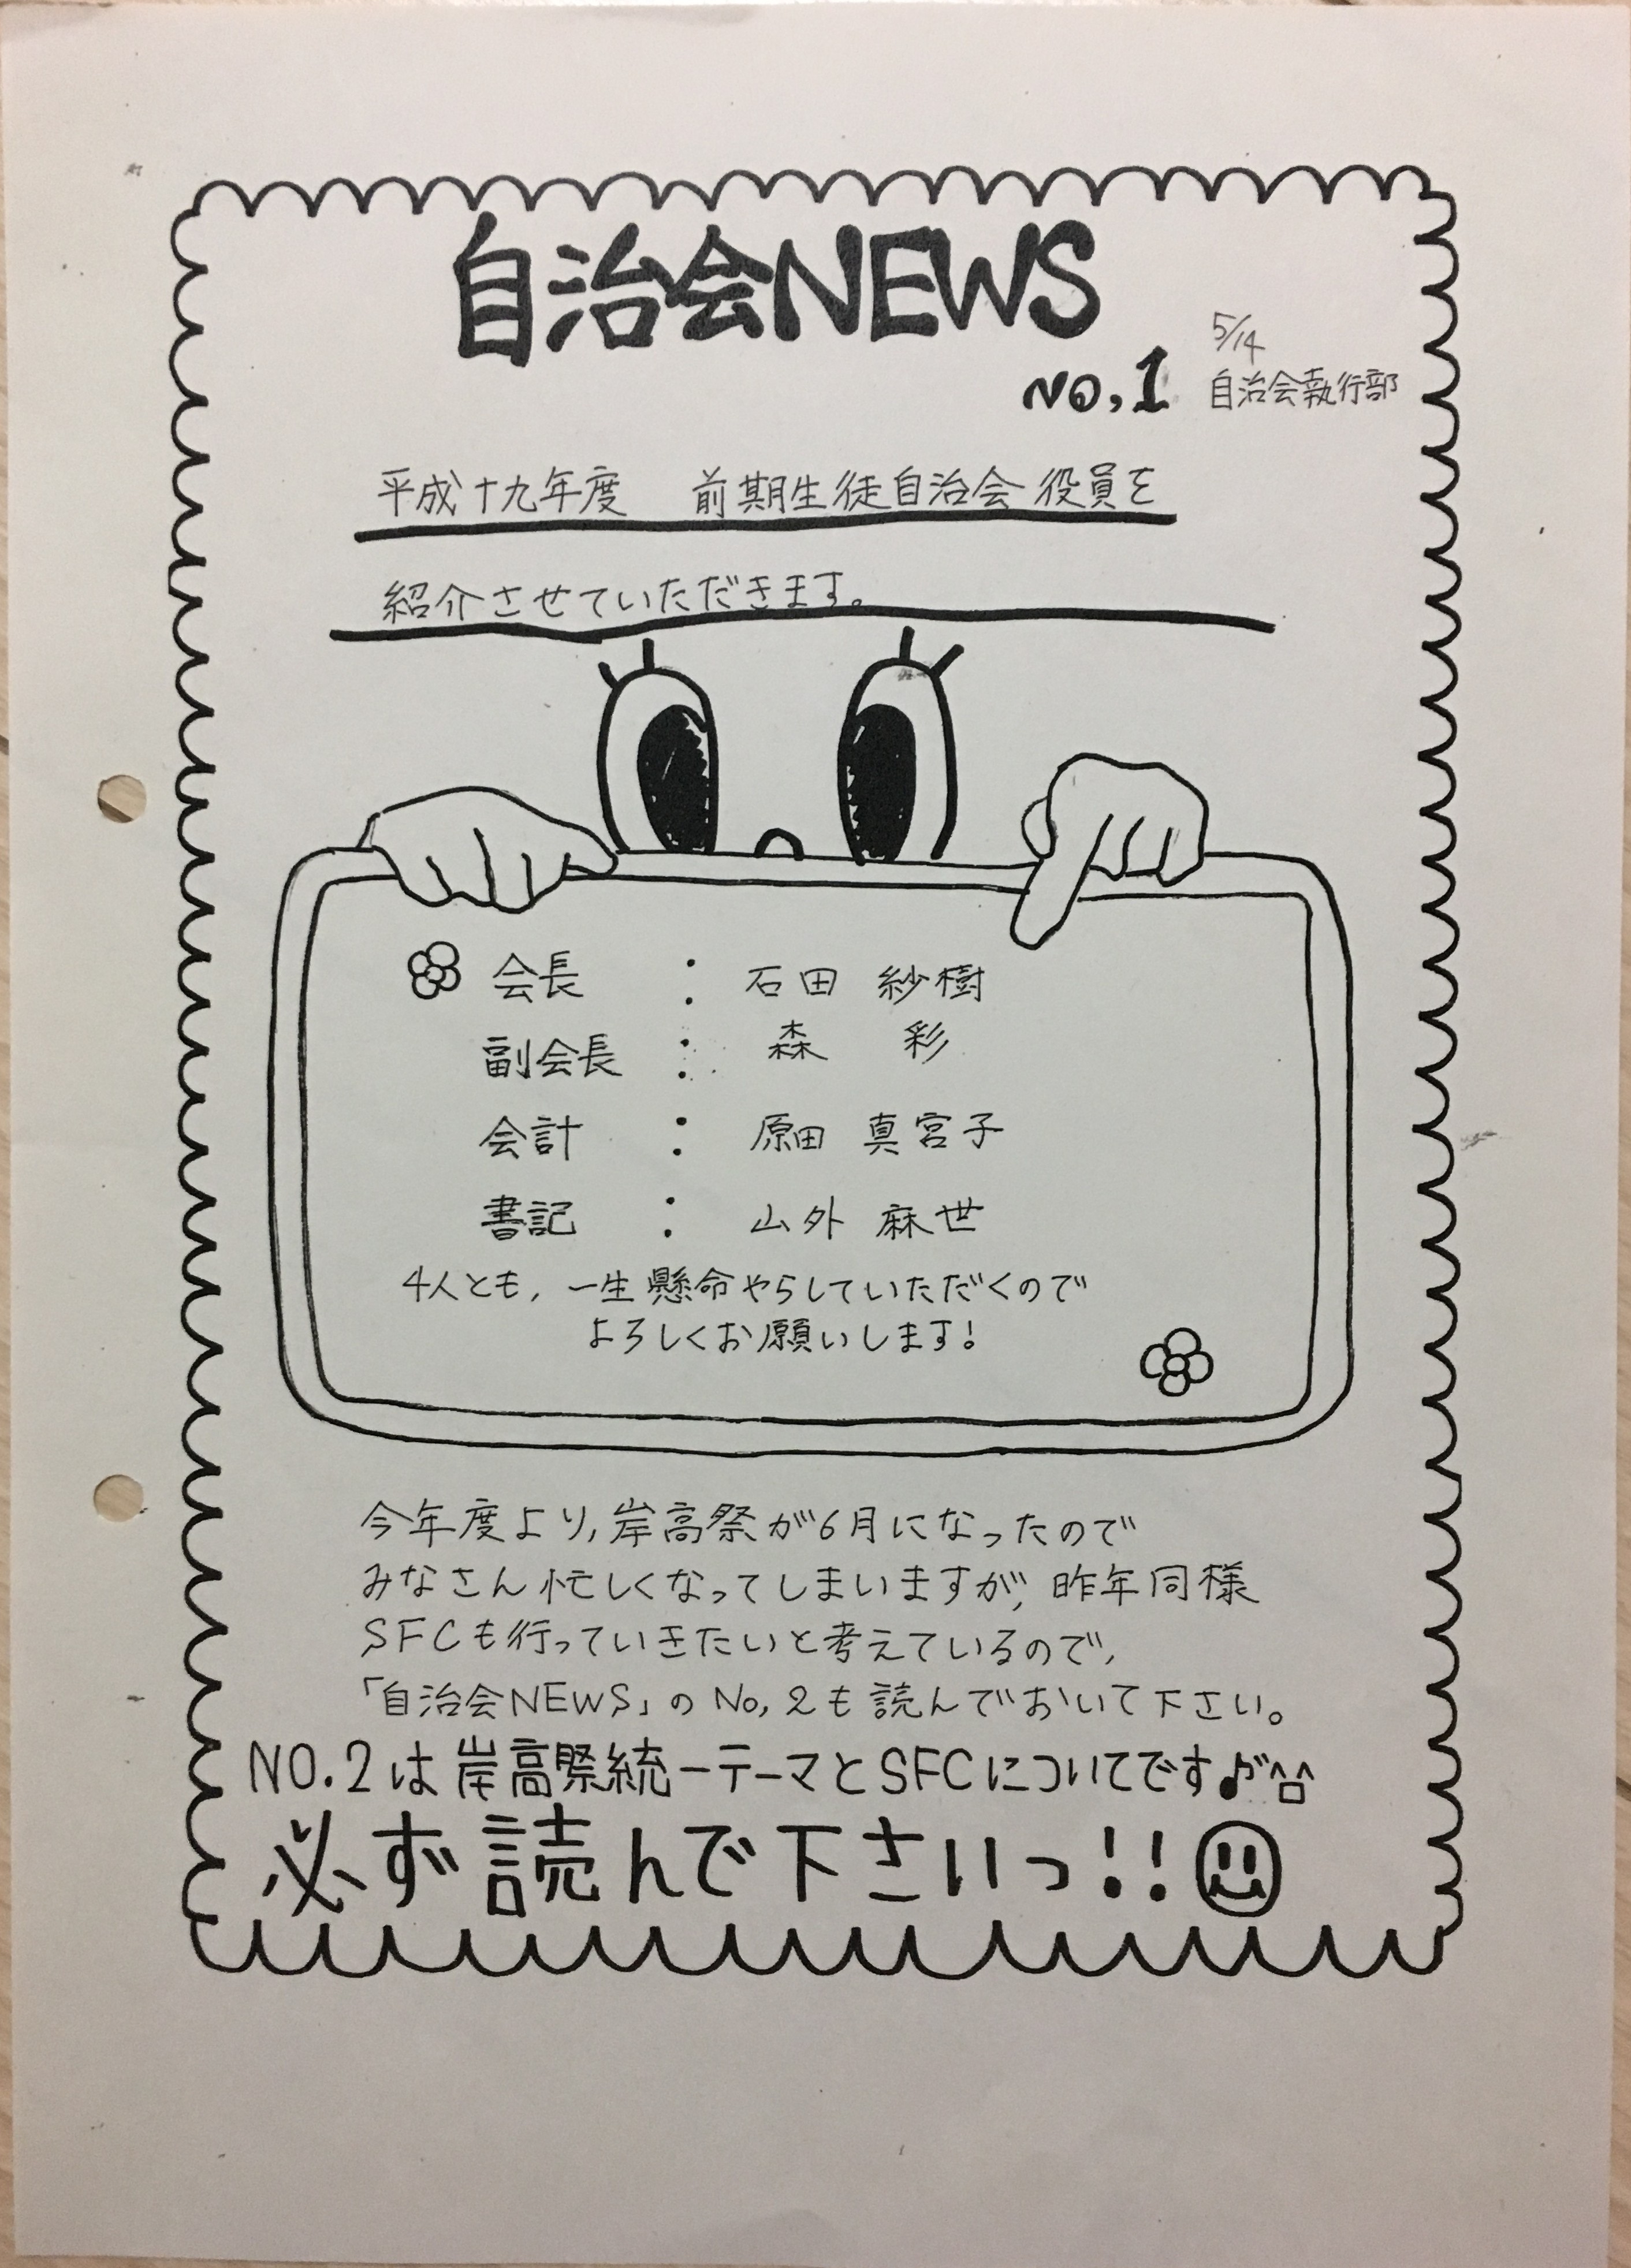 自治会NEWS
NO,1
5/14
自治会執行部
平成十九年度　前期生徒自治会役員を
紹介させていただきます。
会長 : 石田 紗樹
副会長 : 森 彩
会計 : 原田 真宮子
書記 : 山外 麻世
4人とも, 一生懸命やらしていただくので
よろしくお願いします!
今年度より,岸高祭が6月になったので
みなさん忙しくなってしまいますが, 昨年同様
SFCも行っていきたいと考えているので,
「自治会NEWS」のNo,2も読んでおいて下さい。
NO.2は岸高祭統一テーマとSFCについてです♪^ロ^
必ず読んで下さいっ!!